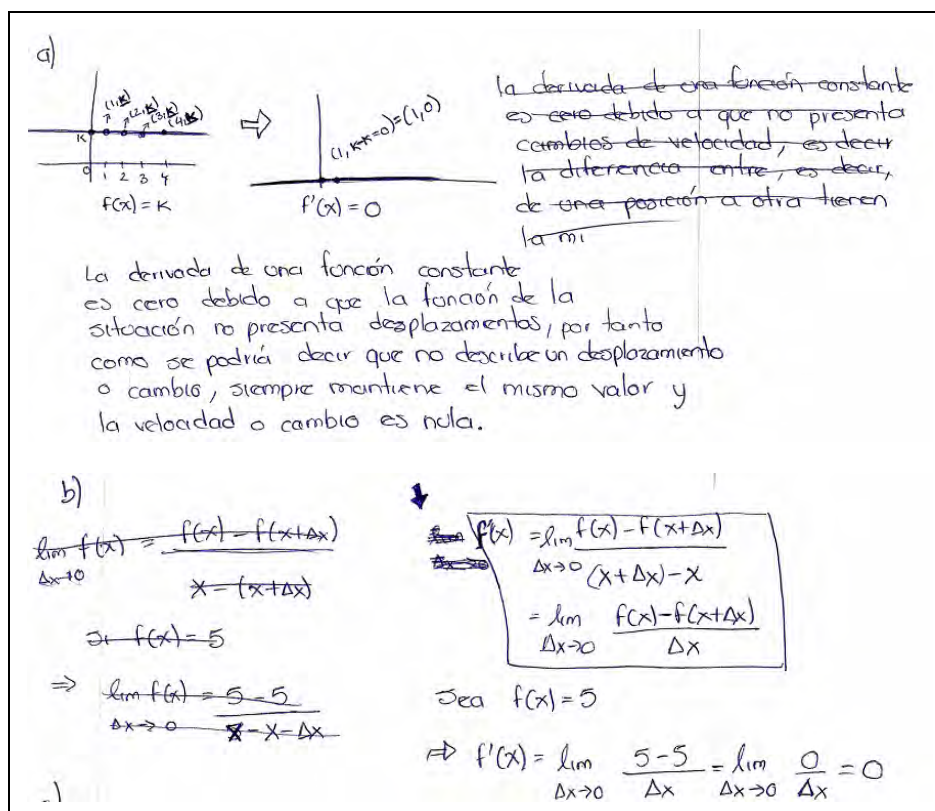 a)
(1,K) (2,K) (3,K) (4,K)
K
0 1 2 3 4
f(x) = K
⇒
(1, K-K=0) = (1,0)
f'(x) = 0
la derivada de una función constante
es cero debido a que no presenta
cambios de velocidad, es decir
la diferencia entre, es decir,
de una posición a otra tienen
la mi
La derivada de una función constante
es cero debido a que la función de la
situación no presenta desplazamientos, por tanto
como se podría decir que no describe un desplazamiento
o cambio, siempre mantiene el mismo valor y
la velocidad o cambio es nula.
b)
lim f(x) = f(x) - f(x+Δx)
Δx→0
x - (x+Δx)
si f(x) = 5
⇒ lim f(x) = 5 - 5
Δx→0 x - x - Δx
f'(x) = lim f(x) - f(x+Δx)
Δx→0 (x+Δx) - x
= lim f(x) - f(x+Δx)
Δx→0 Δx
Sea f(x) = 5
⇒ f'(x) = lim 5-5 = lim 0 = 0
Δx→0 Δx Δx→0 Δx